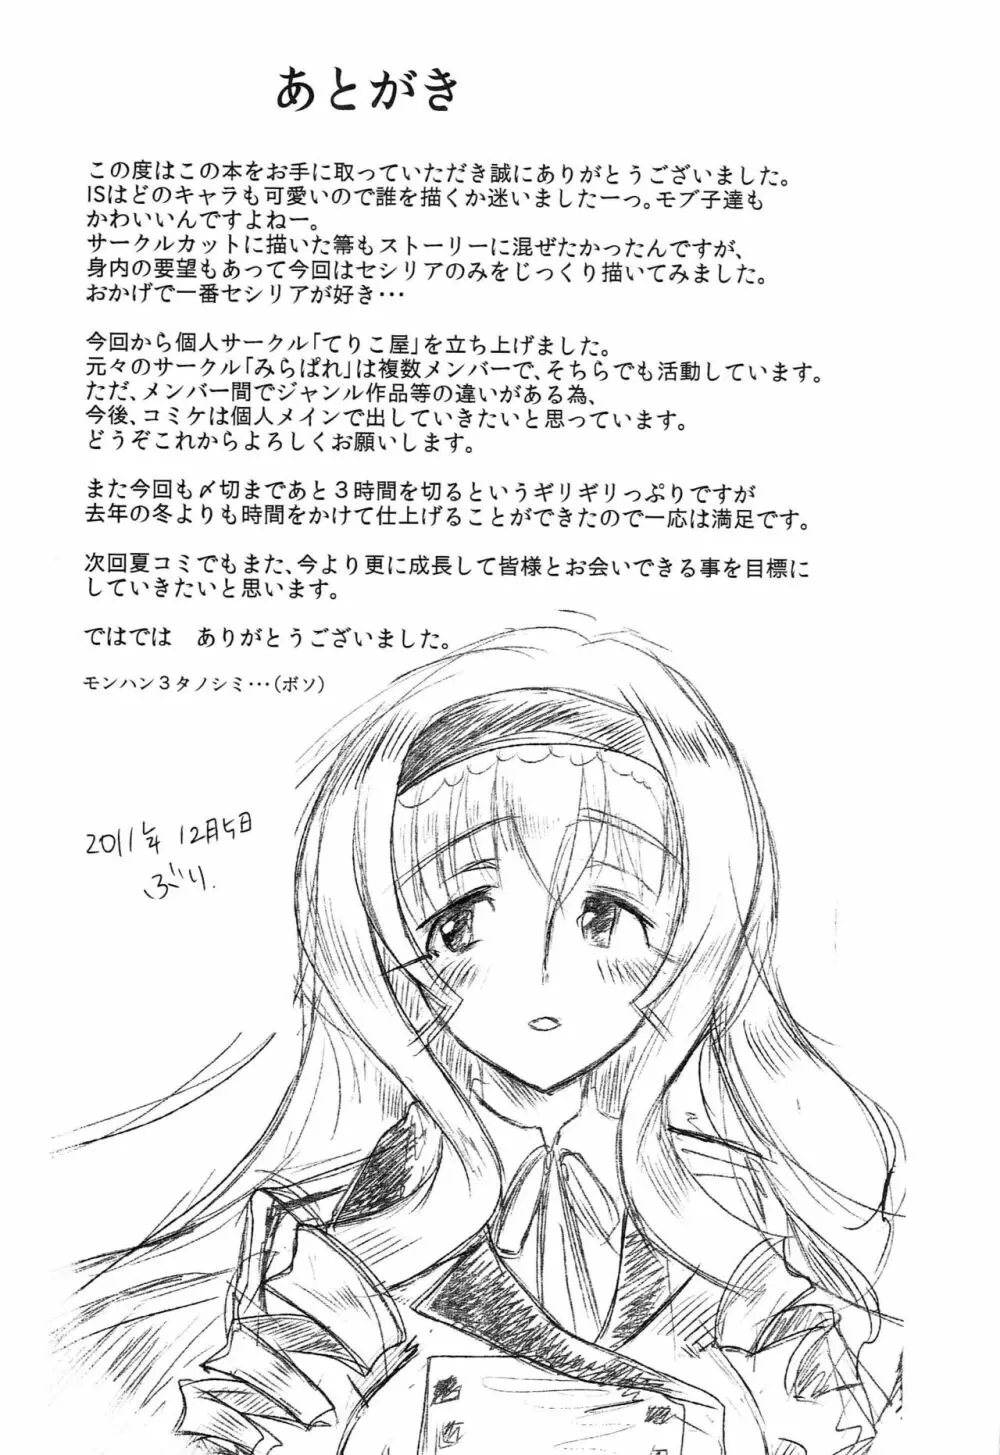 あとがき
この度はこの本をお手に取っていただき誠にありがとうございました。
ISはどのキャラも可愛いので誰を描くか迷いましたーっ。モブ子達も
かわいいんですよねー。
サークルカットに描いた箒もストーリーに混ぜたかったんですが、
身内の要望もあって今回はセシリアのみをじっくり描いてみました。
おかげで一番セシリアが好き・・・
今回から個人サークル「てりこ屋」を立ち上げました。
元々のサークル「みらぱれ」は複数メンバーで、そちらでも活動しています。
ただ、メンバー間でジャンル作品等の違いがある為、
今後、コミケは個人メインで出していきたいと思っています。
どうぞこれからよろしくお願いします。
また今回も〆切まであと３時間を切るというギリギリっぷりですが
去年の冬よりも時間をかけて仕上げることができたので一応は満足です。
次回夏コミでもまた、今より更に成長して皆様とお会いできる事を目標に
していきたいと思います。
ではでは　ありがとうございました。
モンハン３タノシミ・・・（ボソ）
2011年 12月5日
ぶり.